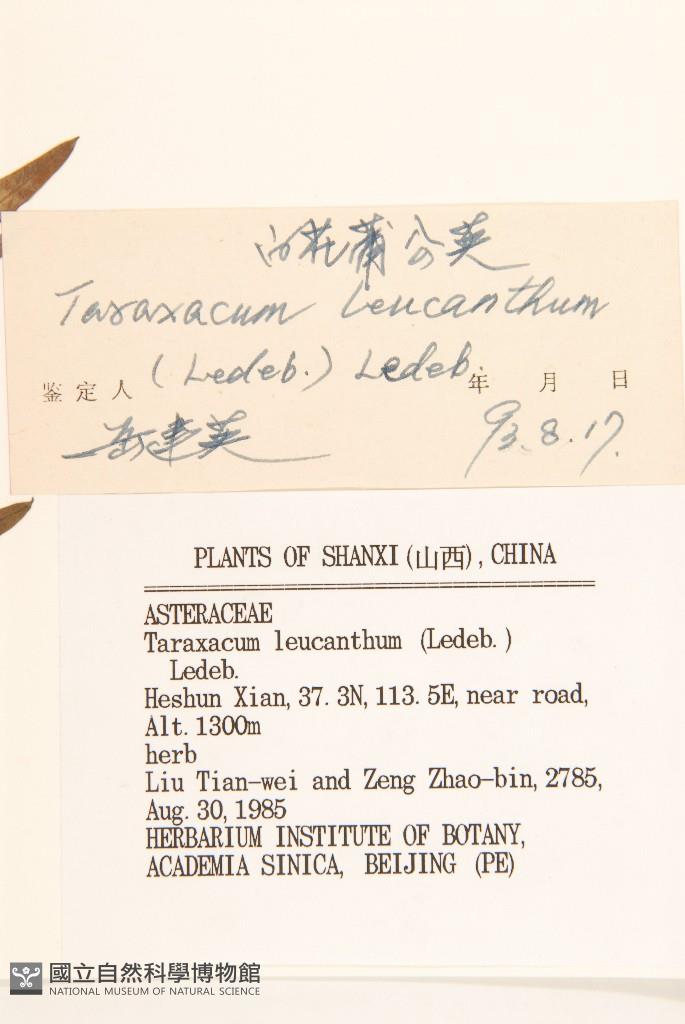 白花蒲公英
Taraxacum leucanthum
(Ledeb.) Ledeb.
鉴定人 年 月 日
岳建英 93.8.17.
PLANTS OF SHANXI(山西), CHINA
ASTERACEAE
Taraxacum leucanthum (Ledeb.)
Ledeb.
Heshun Xian, 37.3N, 113.5E, near road,
Alt. 1300m
herb
Liu Tian-wei and Zeng Zhao-bin, 2785,
Aug. 30, 1985
HERBARIUM INSTITUTE OF BOTANY,
ACADEMIA SINICA, BEIJING (PE)
國立自然科學博物館
NATIONAL MUSEUM OF NATURAL SCIENCE